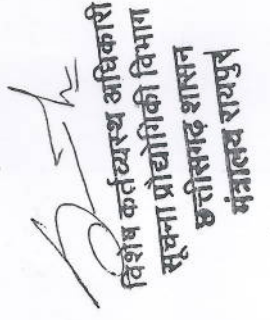 विशेष कर्तव्यस्थ अधिकारी
सूचना प्रौद्योगिकी विभाग
छत्तीसगढ़ शासन
मंत्रालय रायपुर